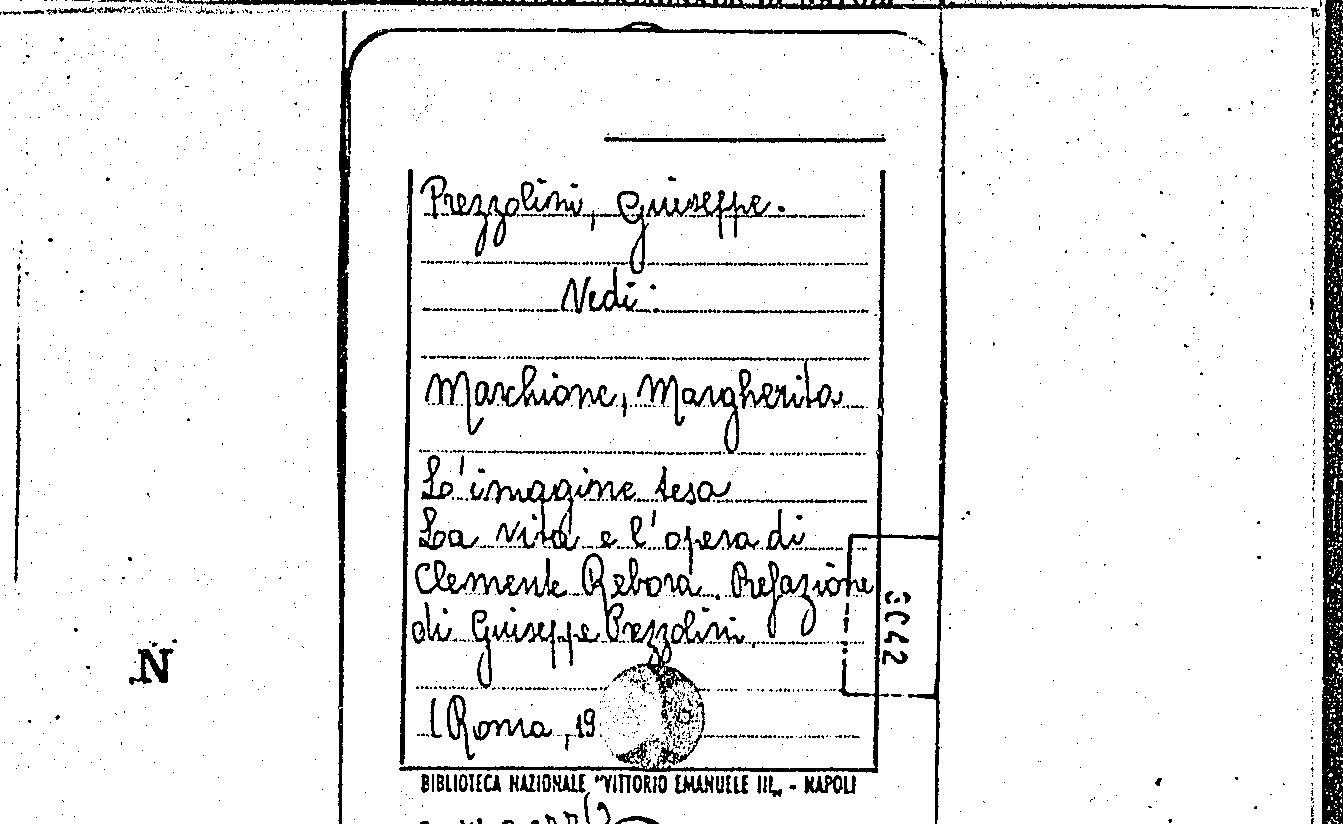 Prezzolini, Giuseppe.
Vedi:
Marchione, Margherita
L'imagine tesa
La vita e l'opera di
Clemente Rebora. Prefazione
di Giuseppe Prezzolini.
(Roma, 19
BIBLIOTECA NAZIONALE "VITTORIO EMANUELE III„ - NAPOLI
N